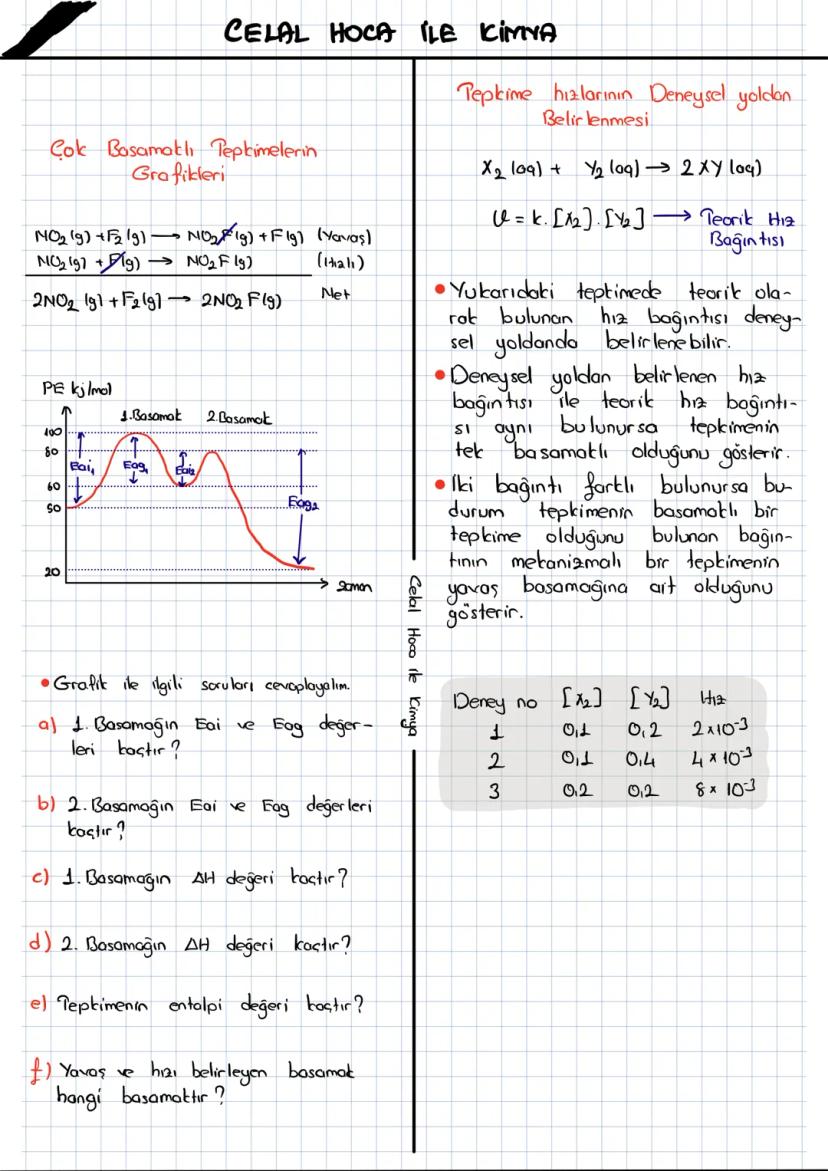 CELAL HOCA İLE KİMYA
Çok Basamaklı Tepkimelerin
Grafikleri
NO₂(g) + F₂(g) → NO₂F(g) + F(g) (Yavaş)
NO₂(g) + F(g) → NO₂F(g) (Hızlı)
2NO₂(g) + F₂(g) → 2NO₂F(g) Net
PE kj/mol
1.Basamak 2.Basamak
100
80
60
50
20
Eai₁
Eag₁
Eai₂
Eag₂
zaman
• Grafik ile ilgili soruları cevaplayalım.
a) 1. Basamağın Eai ve Eag değer-
leri kaçtır?
b) 2. Basamağın Eai ve Eag değerleri
kaçtır?
c) 1. Basamağın ΔH değeri kaçtır?
d) 2. Basamağın ΔH değeri kaçtır?
e) Tepkimenin entalpi değeri kaçtır?
f) Yavaş ve hızı belirleyen basamak
hangi basamaktır?
Celal Hoca ile Kimya
Tepkime hızlarının Deneysel yoldan
Belirlenmesi
X₂(aq) + Y₂(aq) → 2XY(aq)
ϑ = k.[X₂].[Y₂] → Teorik Hız
Bağıntısı
• Yukarıdaki tepkimede teorik ola-
rak bulunan hız bağıntısı deney-
sel yoldanda belirlenebilir.
• Deneysel yoldan belirlenen hız
bağıntısı ile teorik hız bağıntı-
sı aynı bulunursa tepkimenin
tek basamaklı olduğunu gösterir.
• İki bağıntı farklı bulunursa bu
durum tepkimenin basamaklı bir
tepkime olduğunu bulunan bağın-
tının mekanizmalı bir tepkimenin
yavaş basamağına ait olduğunu
gösterir.
Deney no [X₂] [Y₂] Hız
1 0,1 0,2 2x10⁻³
2 0,1 0,4 4x10⁻³
3 0,2 0,2 8x10⁻³